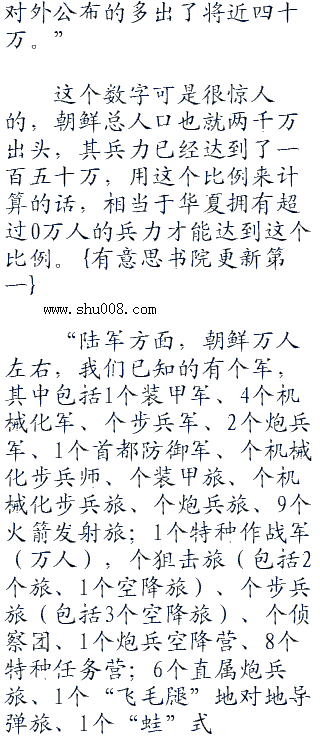 对外公布的多出了将近四十
万。”
这个数字可是很惊人
的，朝鲜总人口也就两千万
出头，其兵力已经达到了一
百五十万，用这个比例来计
算的话，相当于华夏拥有超
过0万人的兵力才能达到这个
比例。{有意思书院更新第
一}
www.shu008.com
“陆军方面，朝鲜万人
左右，我们已知的有个军，
其中包括1个装甲军、4个机
械化军、个步兵军、2个炮兵
军、1个首都防御军、个机械
化步兵师、个装甲旅、个机
械化步兵旅、个炮兵旅、9个
火箭发射旅；1个特种作战军
（万人），个狙击旅（包括2
个旅、1个空降旅）、个步兵
旅（包括3个空降旅）、个侦
察团、1个炮兵空降营、8个
特种任务营；6个直属炮兵
旅、1个“飞毛腿”地对地导
弹旅、1个“蛙”式